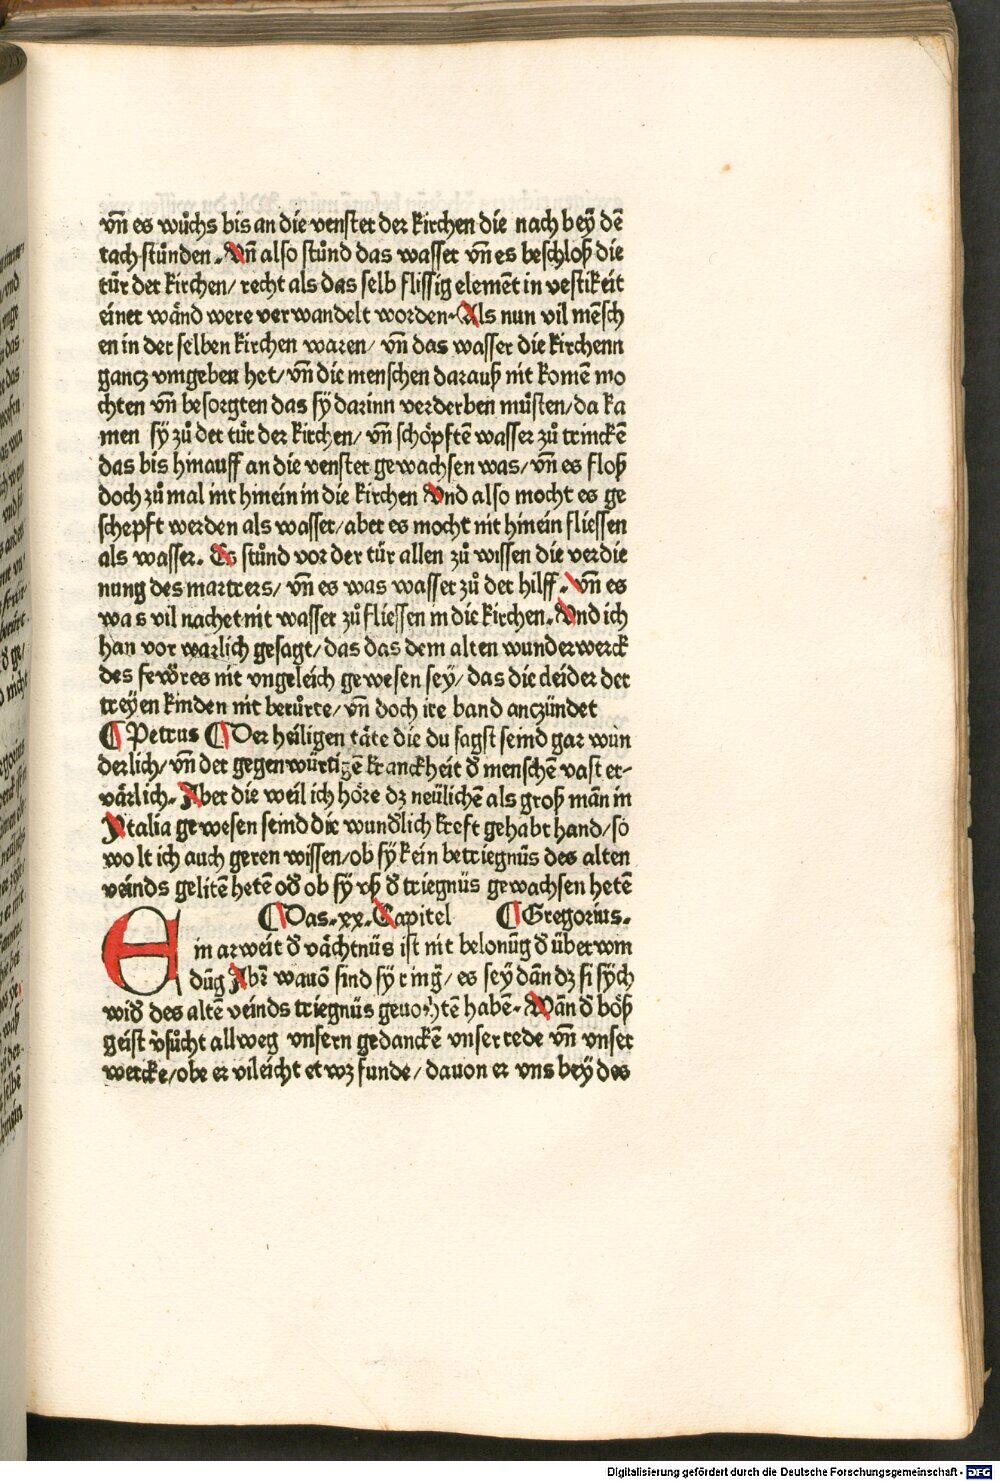 vn̄ es wůchs bis an die venster der kirchen die nach bey dē
tach stůnden. Vn̄ also stůnd das wasser vn̄ es beschloß die
tür der kirchen/ recht als das selb flissig elemēt in vestikeit
einer wānd were verwandelt worden. Als nun vil mēsch
en in der selben kirchen waren/ vn̄ das wasser die kirchenn
gancz vmgeben het/ vn̄ die menschen darauß nit komē mo
chten vn̄ besorgten das sÿ darinn verderben müsten/ da ka
men sÿ zů der tür der kirchen/ vn̄ schöpftē wasser zů trinckē
das bis hinauff an die venster gewachsen was/ vn̄ es floß
doch zů mal nit hinein in die kirchen Vnd also mocht es ge
schepft werden als wasser/ aber es mocht nit hinein fliessen
als wasser. Es stůnd vor der tür allen zů wissen die verdie
nung des martrers/ vn̄ es was wasser zů der hilff. vn̄ es
was vil nachet nit wasser zů fliessen in die kirchen. Vnd ich
han vor warlich gesagt/ das das dem alten wunderwerck
des fewres nit vngeleich gewesen sey/ das die cleider der
treyen kinden nit berůrte/ vn̄ doch ire band anczündet
¶ Petrus ¶ Der heiligen täte die du sagst seind gar wun
derlich/ vn̄ der gegenwürtigē kranckheit d̄ menschē vast er-
värlich. Aber die weil ich höre dz neülichē als groß mān in
Italia gewesen seind die wund̄lich kreft gehabt hand/ so
wolt ich auch geren wissen/ ob sÿ kein betriegnüs des alten
veinds gelitē hetē od̄ ob sÿ vß d̄ triegnüs gewachsen hetē
¶ Das. xx. Capitel ¶ Gregorius.
Ein arweit d̄ vächtnüs ist nit belonūg d̄ überwin
dūg Abr̄ wauō sind sÿ ringr̄/ es sey dān dz si sÿch
wid̄ des altē veinds triegnüs gevochtē habē. Wān d̄ böß
geist v̄sůcht allweg vnsern gedanckē vnser rede vn̄ vnser
wercke/ obe er vileicht etwz funde/ dauon er vns bey des
Digitalisierung gefördert durch die Deutsche Forschungsgemeinschaft - DFG